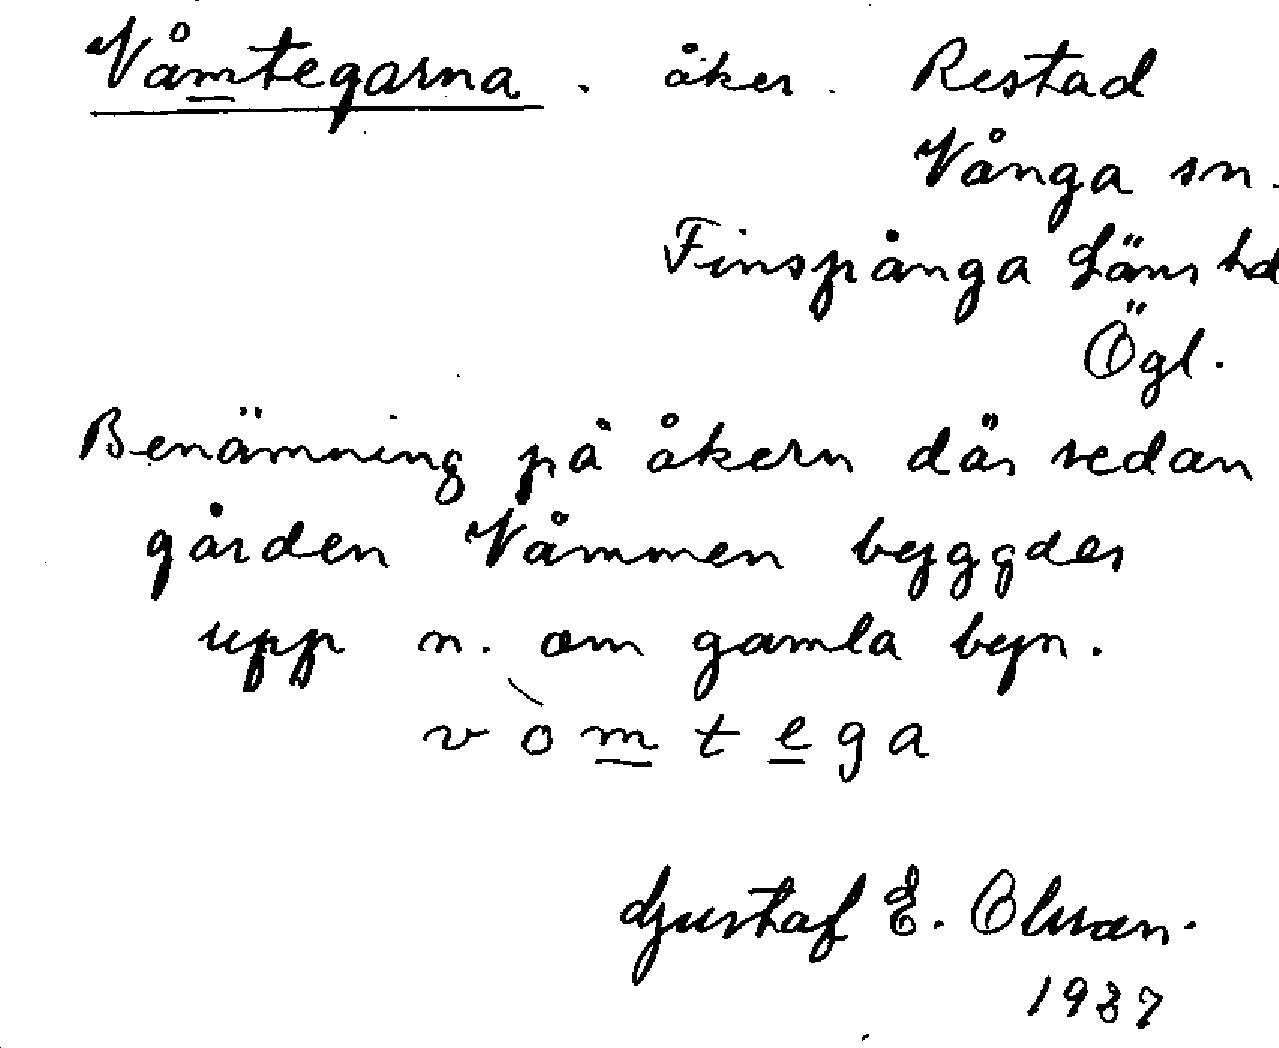 Våmtegarna. åker. Restad
Vånga sn.
Finspånga Läns hd
Ögl.
Benämning på åkern där sedan
gården Våmmen byggdes
upp n. om gamla byn.
vò̀mtega
Gustaf E. Olsson.
1937